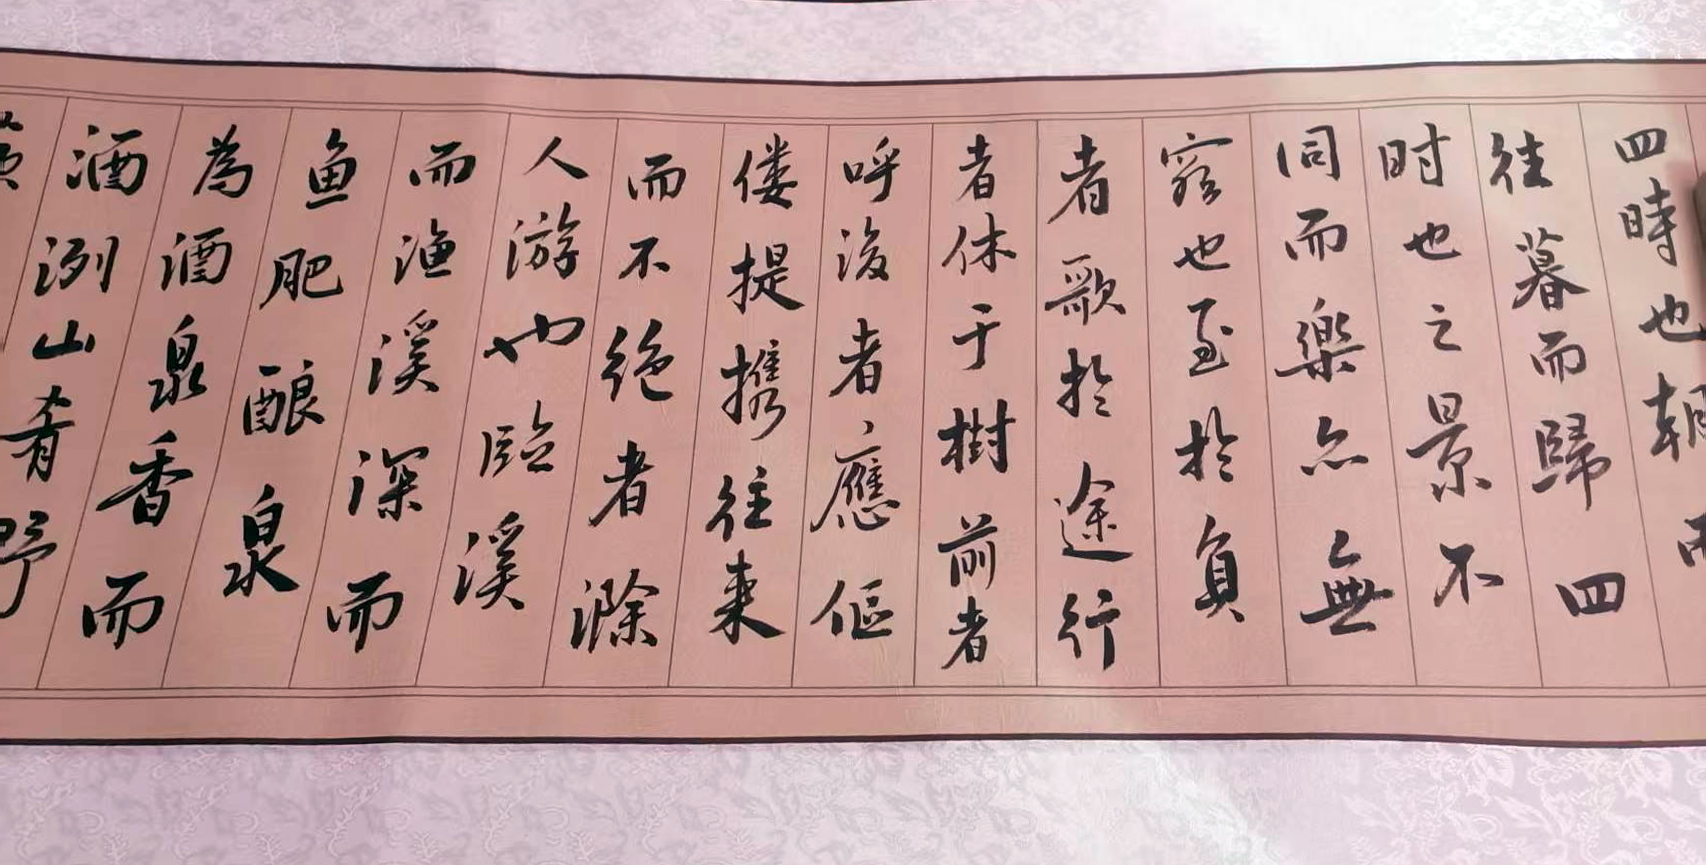 四時也朝而
往暮而歸四
时也之景不
同而樂亦無
窮也至於負
者歌於途行
者休于樹前者
呼後者應傴
僂提携往来
而不绝者滁
人游也臨溪
而渔溪深而
鱼肥酿泉
為酒泉香而
酒洌山肴野